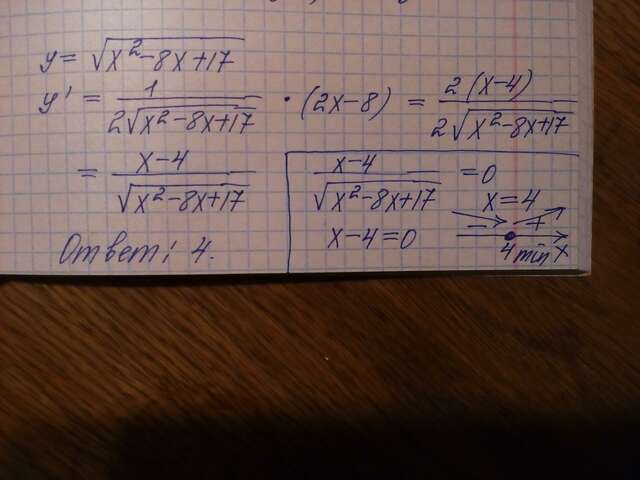 y = √(x² - 8x + 17)
y' = 1 / (2√(x² - 8x + 17)) · (2x - 8) = 2(x - 4) / (2√(x² - 8x + 17))
= (x - 4) / √(x² - 8x + 17)
(x - 4) / √(x² - 8x + 17) = 0
x = 4
x - 4 = 0
- +
4 min x
Ответ: 4.